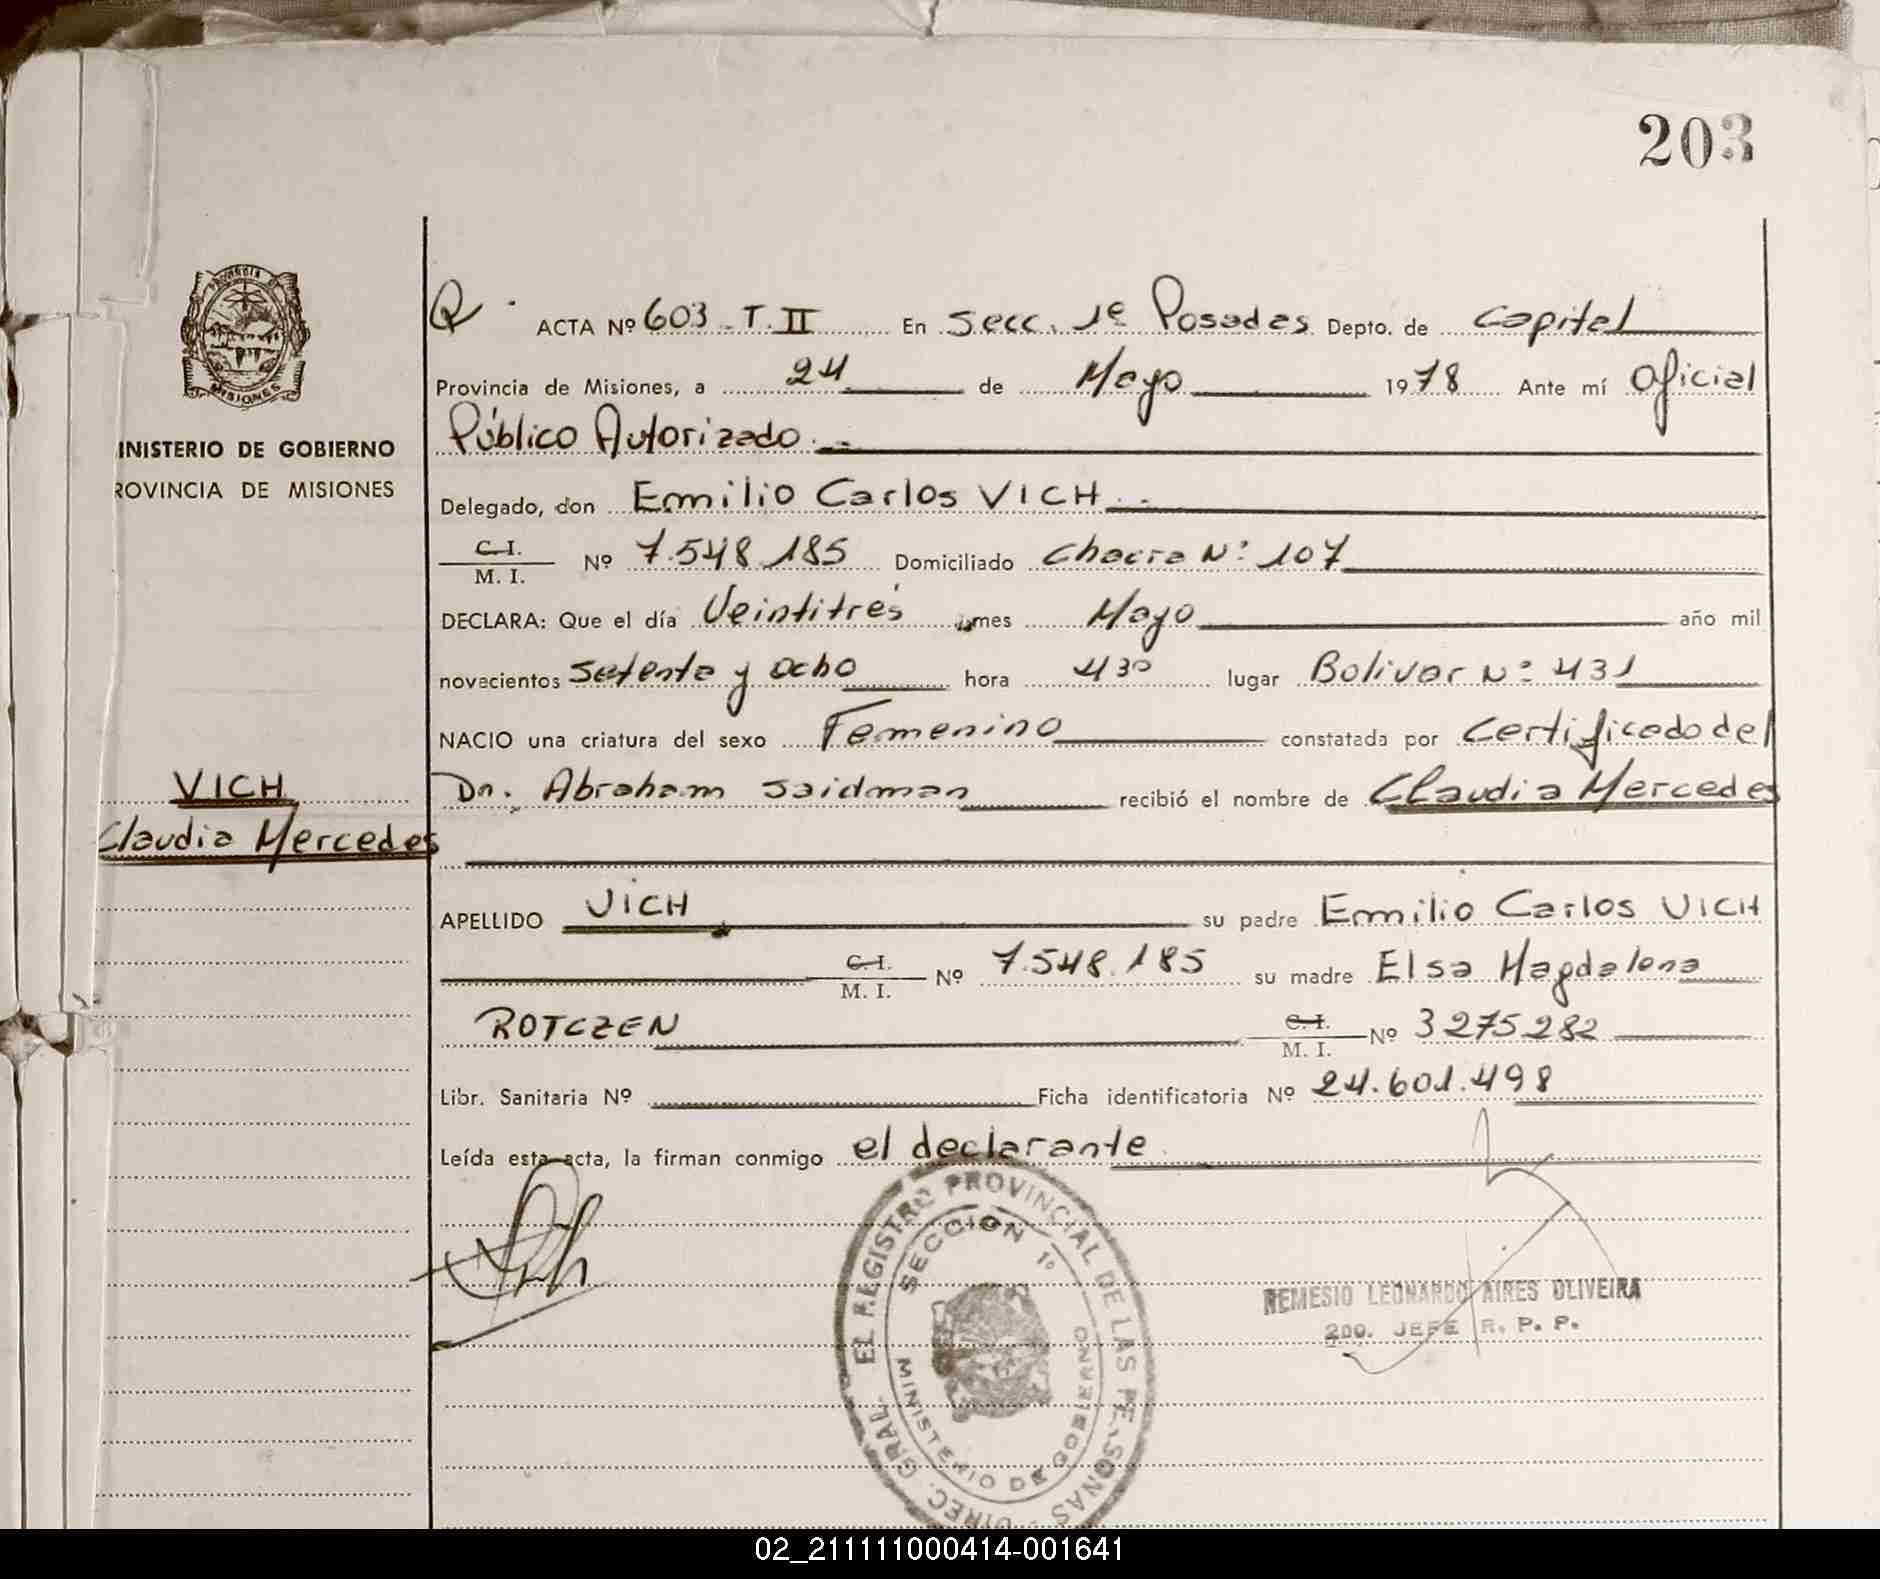 203
PROVINCIA
MISIONES
INISTERIO DE GOBIERNO
ROVINCIA DE MISIONES
ACTA Nº 603 - T. II En Secc. 1ª Posadas Depto. de Capital
Provincia de Misiones, a 24 de Mayo 1978 Ante mí Oficial
Público Autorizado.-
Delegado, don Emilio Carlos VICH.-
C. I.
M. I. Nº 7.548.185 Domiciliado Chacra Nº 107
DECLARA: Que el día Veintitrés mes Mayo año mil
novecientos Setenta y Ocho hora 4 30 lugar Bolivar Nº 431
NACIO una criatura del sexo Femenino constatada por Certificado del
VICH
Dn. Abraham Saidman recibió el nombre de Claudia Mercedes
Claudia Mercedes
APELLIDO VICH su padre Emilio Carlos VICH
C. I.
M. I. Nº 7.548.185 su madre Elsa Magdalena
ROTCZEN C. I.
M. I. Nº 3275282
Libr. Sanitaria Nº Ficha identificatoria Nº 24.601.498
Leída esta acta, la firman conmigo el declarante
DIREC. GRAL. EL REGISTRO PROVINCIAL DE LAS PERSONAS
SECCION 1º
MINISTERIO DE GOBIERNO
REMESIO LEONARDO AIRES OLIVEIRA
2DO. JEFE R. P. P.
02_211111000414-001641